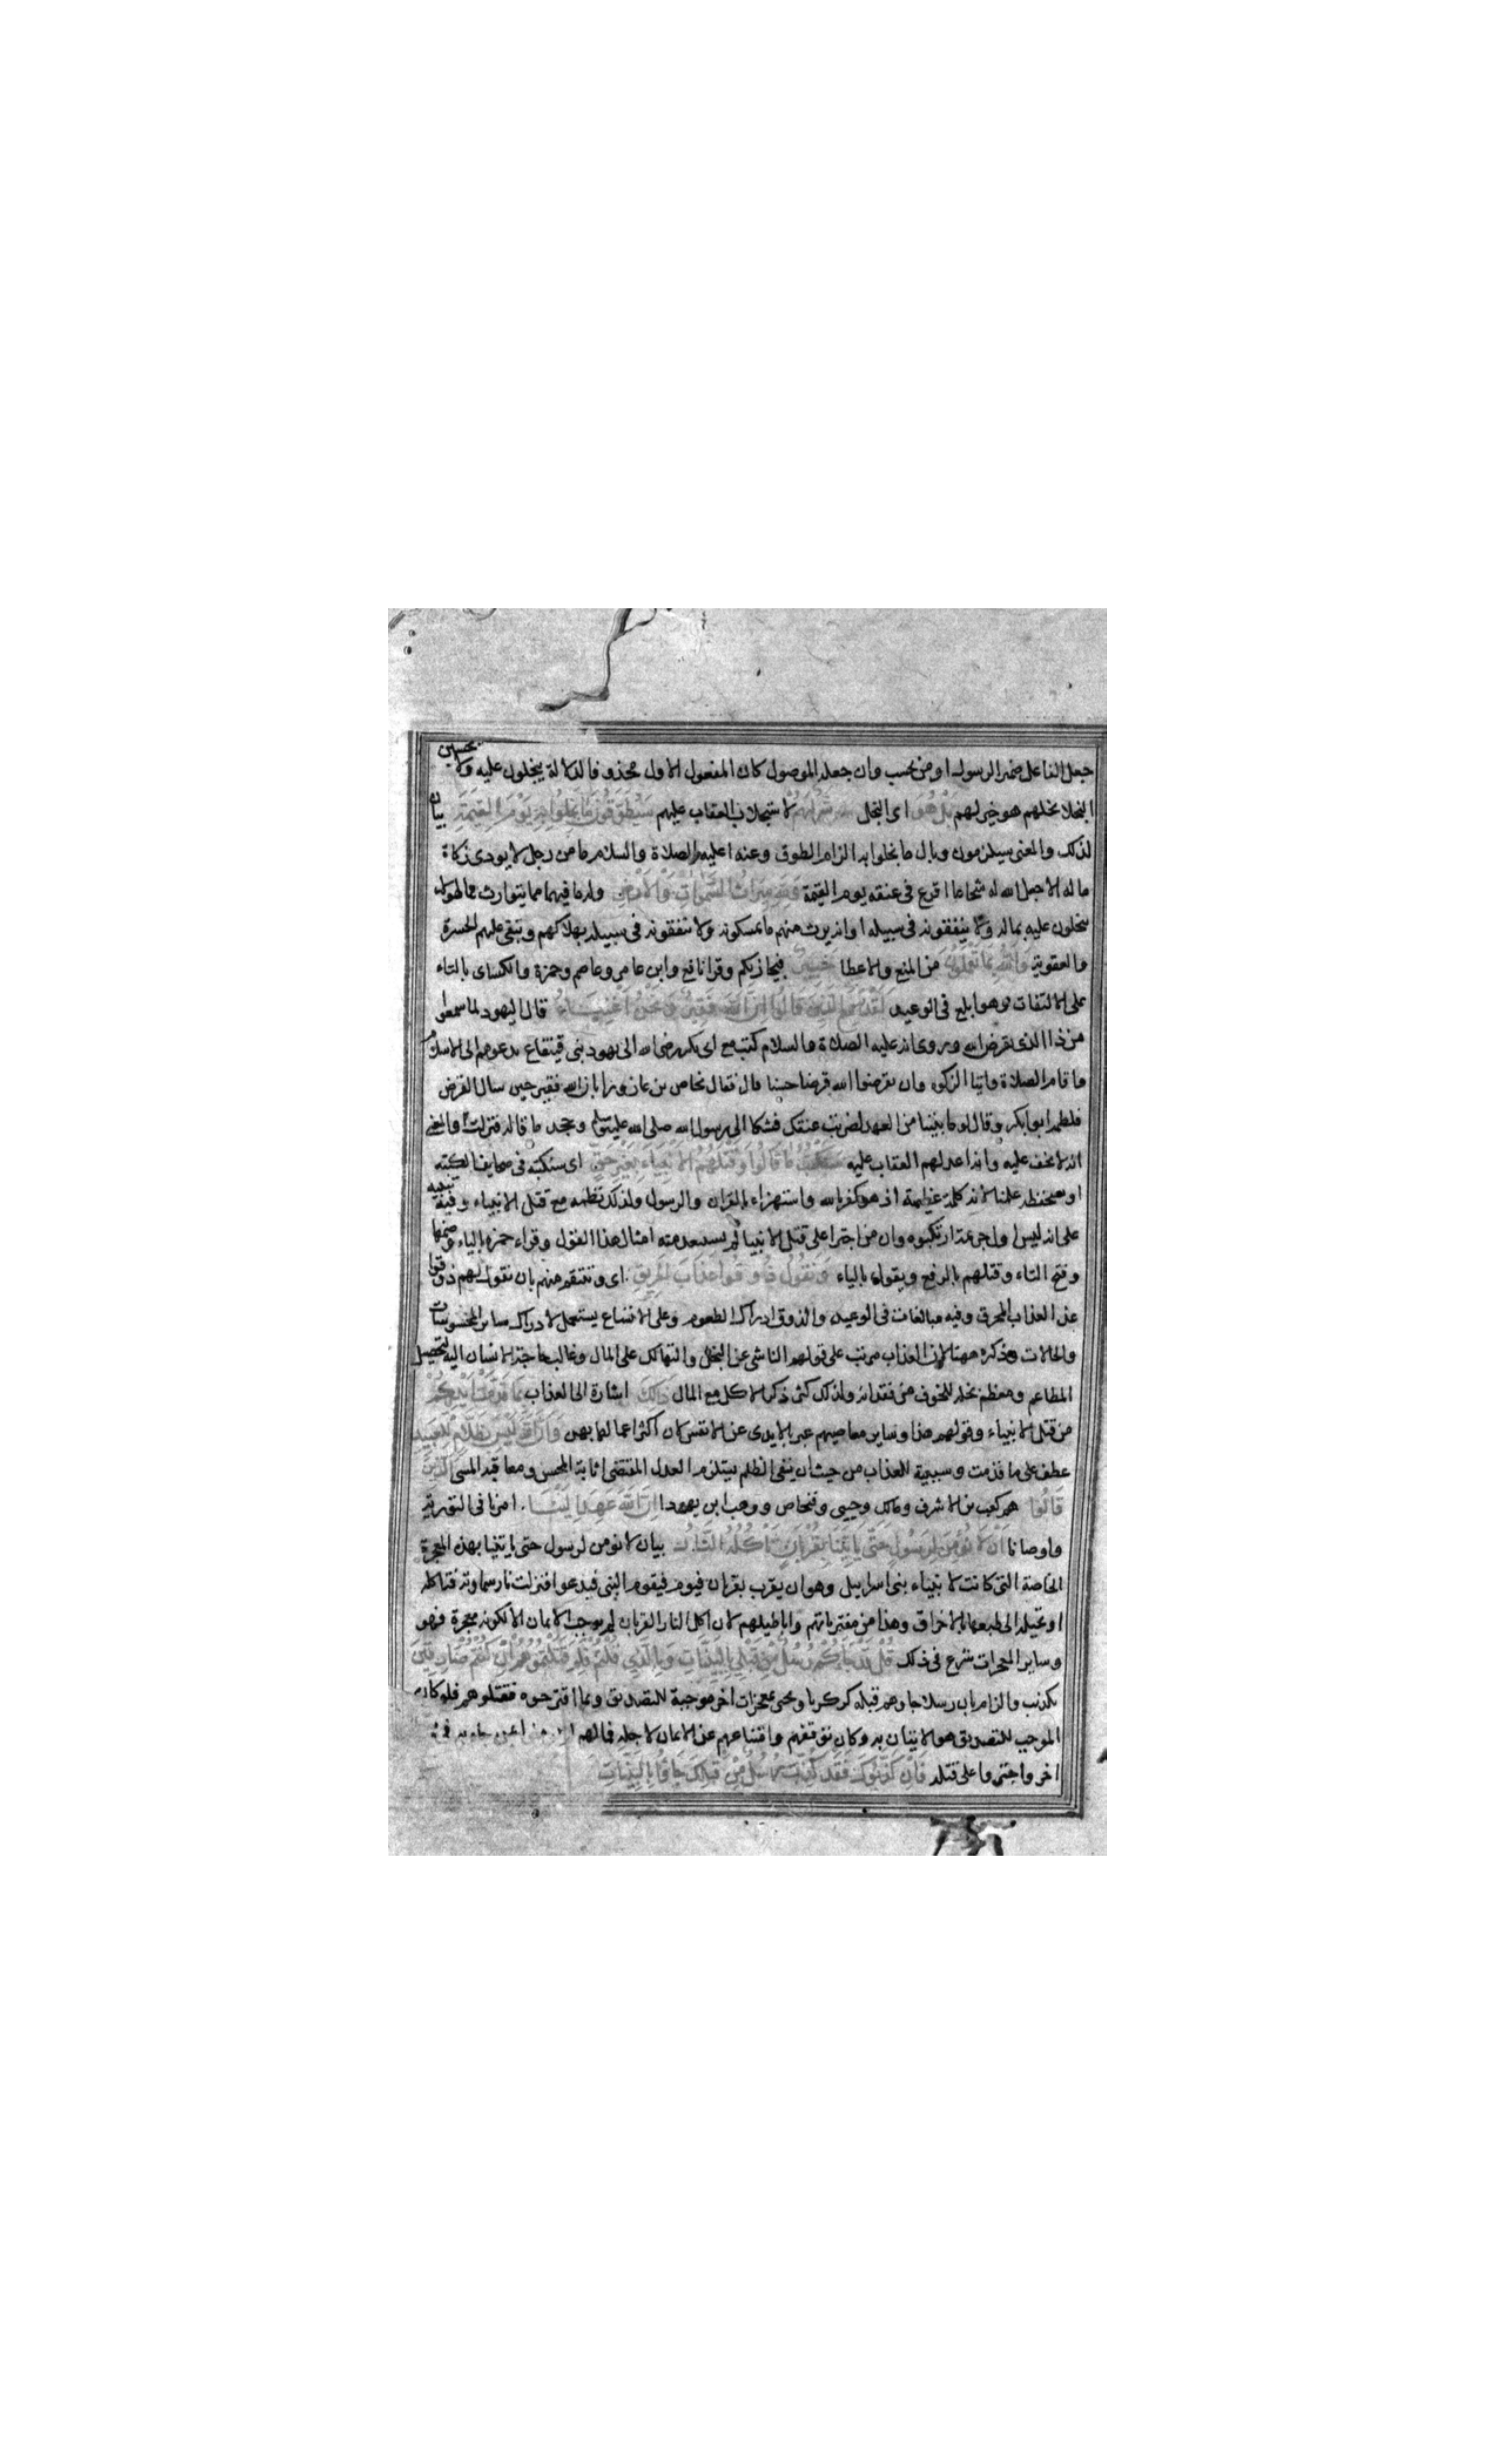 جعل الفاعل ضمير الرسول او من يحسب وان جعله الموصول كان المفعول الاول محذوفا لدلالة يبخلون عليه ولا يحسبن
البخلا بخلهم هو خير لهم بل هو اى البخل شر لهم لاستجلاب العقاب عليهم سيطوقون ما بخلوا به يوم القيمة بيان
لذلك والمعنى سيلزمون وبال ما بخلوا به الزام الطوق وعنه عليه الصلاة والسلام ما من رجل لا يودى زكاة
ماله الا جعل الله له شجاعا اقرع فى عنقه يوم القيمة ولله ميراث السموات والارض وله ما فيهما مما يتوارث فما لهولاء
يبخلون عليه بماله ولا ينفقونه فى سبيله او انه يرث منهم ما يمسكونه ولا ينفقونه فى سبيله بهلاكهم وتبقى عليهم الحسرة
والعقوبة والله بما تعملون من المنع والاعطا خبير فيجازيكم وقرا نافع وابن عامر وعاصم وحمزة والكساى بالتاء
على الالتفات وهو ابلغ فى الوعيد لقد سمع الله قول الذين قالوا ان الله فقير ونحن اغنياء قال اليهود لما سمعوا
من ذا الذى يقرض الله وروى انه عليه الصلاة والسلام كتب مع ابى بكر رضى الله الى يهود بنى قينقاع يدعوهم الى الاسلام
واقام الصلاة وايتا الزكوة وان يقرضوا الله قرضا حسنا قال فقال فنحاص بن عازورا بان الله فقير حين سال القرض
فلطمه ابو بكر وقال لولا ما بيننا من العهد لضربت عنقك فشكا الى رسول الله صلى الله عليه وسلم وجحد ما قاله فنزلت والمعنى
انه لا يخف عليه وانه اعد لهم العقاب عليه سنكتب ما قالوا وقتلهم الانبياء بغير حق اى سنكتبه فى صحايف الكتبه
او سنحفظه فى علمنا لانه كلمة عظيمة اذ هو كفر بالله واستهزاء بالقران والرسول ولذلك نظمه مع قتل الانبياء وفيه تنبيه
على انه ليس اول جريمة ارتكبوه وان من اجترا على قتل الانبيا لم يستبعد منه امثال هذا القول وقراء حمزه بالياء وضمها
وفتح التاء وقتلهم بالرفع ويقول بالياء ونقول ذوقوا عذاب الحريق اى وننتقم منهم بان نقول لهم ذوقوا
هذا العذاب المحرق وفيه مبالغات فى الوعيد والذوق ادراك الطعوم وعلى الاتساع يستعمل لادراك ساير المحسوسات
والحالات وذكره ههنا لان العذاب مرتب على قولهم الناشى عن البخل والتهالك على المال وغالب حاجة الانسان اليه لتحصيل
المطاعم ومعظم بخله للخوف من فقدانه ولذلك كثر ذكر الاكل مع المال ذلك اشارة الى العذاب بما قدمت ايديكم
من قتل الانبياء وقولهم هذا وساير معاصيهم عبر بالايدى عن الانفس لان اكثر اعمالها بهن وان الله ليس بظلام للعبيد
عطف على ما قدمت وسببية للعذاب من حيث ان نفى الظلم يستلزم العدل المقتضى اثابة المحسن ومعاقبة المسى الذين
قالوا هم كعب بن الاشرف ومالك وحيى وفنحاص ووهب ابن يهودا ان الله عهد الينا امرنا فى التورية
واوصانا ان لا نؤمن لرسول حتى ياتينا بقربان تاكله النار بيان لا نومن لرسول حتى ياتينا بهذه المعجزة
الخاصة التى كانت لانبياء بنى اسراييل وهو ان يقرب بقربان فيقوم النبى فيدعوا فنزلت نار سماوية فتاكله
او تحيله الى طبعها بالاحراق وهذا من مفترياتهم واباطيلهم لان اكل النار القربان لم يوجب الايمان الا لكونه معجزة فهو
وساير المعجزات شرع فى ذلك قل قد جاءكم رسل من قبلى بالبينات وبالذى قلتم فلم قتلتموهم ان كنتم صادقين
تكذيب والزام بان رسلا جاوهم قبله كزكريا ويحى بمعجزات اخر موجبة للتصديق وبما اقترحوه فقتلوهم فلو كان
الموجب للتصديق هو الاتيان به وكان توقفهم وامتناعهم عن الايمان لاجله فما لهم
اخر واجتروا على قتله فان كذبوك فقد كذب رسل من قبلك جاؤا بالبينات